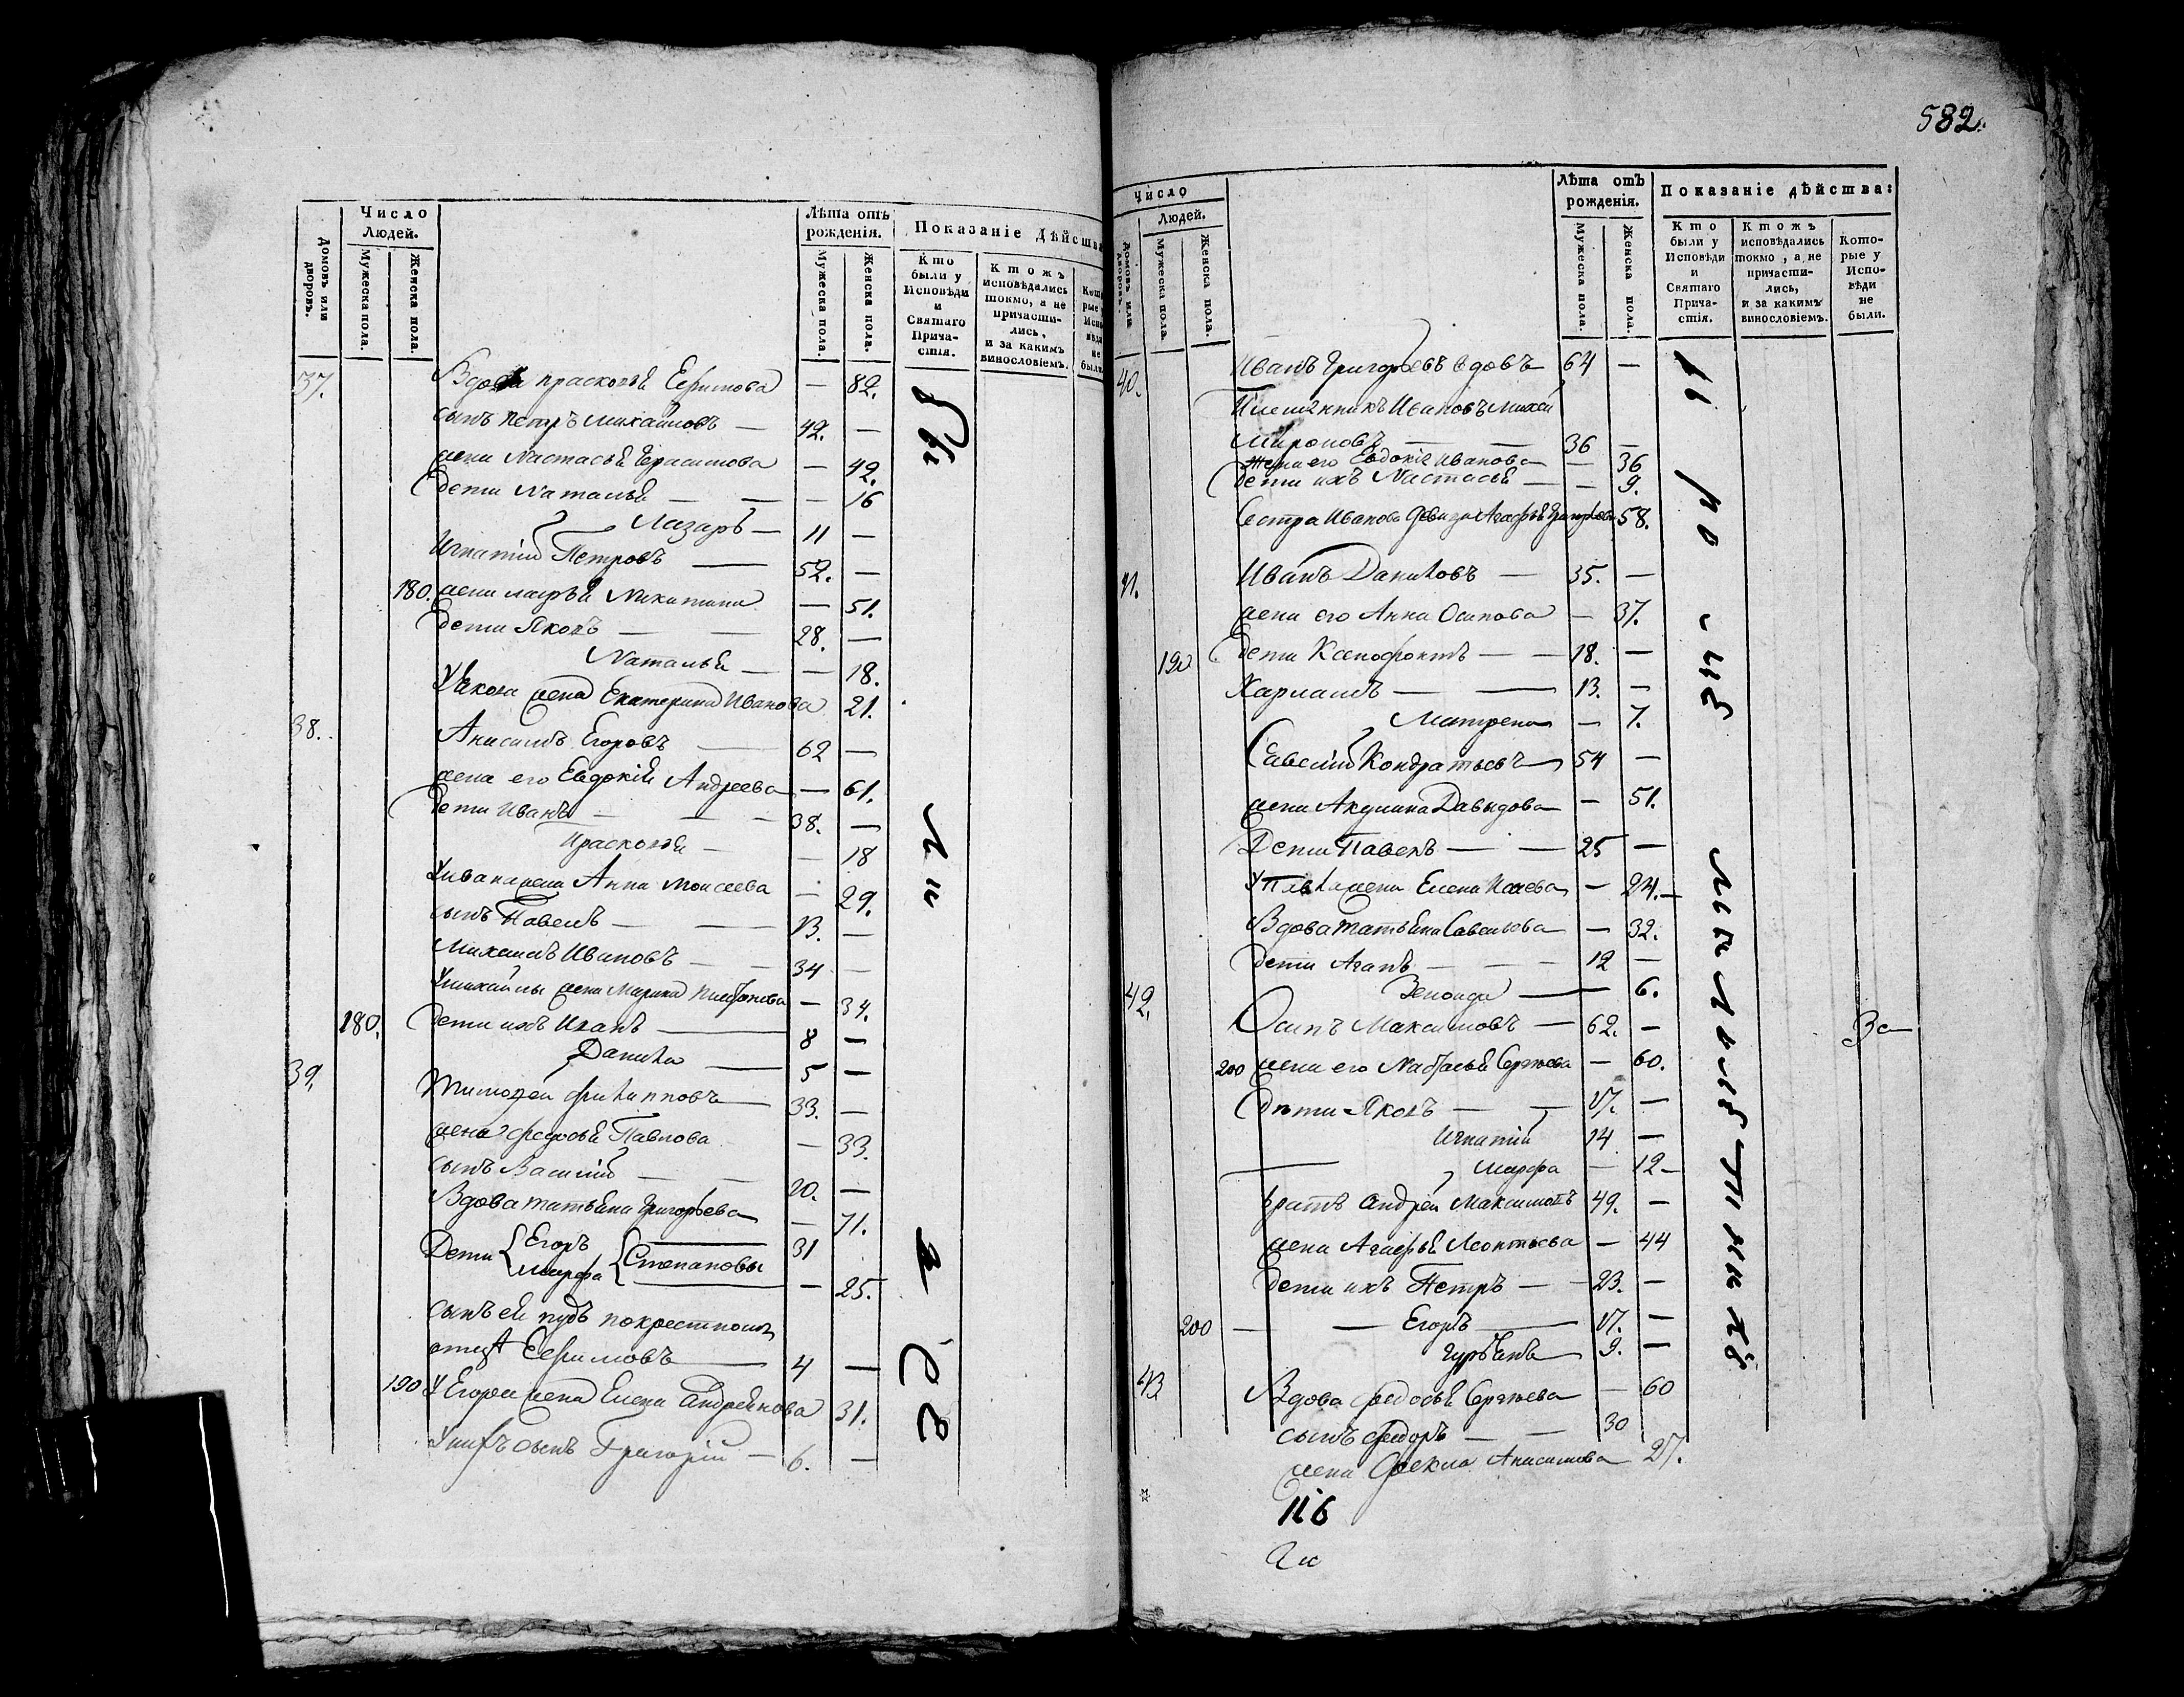 Число
Людей.
Лѣта отъ
рожденія.
Показаніе Дѣйства
Домовъ или дворовъ.
Мужеска пола.
Женска пола.
Мужеска пола.
Женска пола.
Кто были у Исповѣди и Святаго Прича-стія.
Ктожъ исповѣдались токмо, а не причасти-лись, и за какимъ винословіемъ.
37. Вдова Прасковья Ефимова — 82.
сынъ Петръ Михайловъ — 42. —
жена Настасья Герасимова — 42.
дети Наталья — — — 16
Лазарь — 11 —
Игнатій Петровъ — 52. —
180. жена Марья Никитина — 51.
дети Яковъ — — 28. —
Наталья — — 18.
У Якова жена Екатерина Иванова 21.
38. Анисимъ Егоровъ — 62 —
жена его Евдокія Андреева — 61.
дети Иванъ — — — 38. —
Прасковья — — 18
У Ивана жена Анна Моисеева — 29.
сынъ Павелъ — — 13. —
Михаилъ Ивановъ — — 34 —
У Михайлы жена Марина — 34.
180. дети ихъ Иванъ — 8 —
Данила — 5 —
39. Тимофей Филипповъ — 33. —
жена Федосья Павлова — 33.
сынъ Василій — — 20. —
Вдова Татьяна Григорьева — 71.
Дети Егоръ 31
Марфа Степановы — 25.
сынъ ей покрестному
отцу Ефимовъ — 4 —
190 У Егора жена Елена 31.
сынъ Григорій — 6. —
582.
Число
Людей.
Лѣта отъ
рожденія.
Показаніе дѣйства:
Домовъ или дворовъ.
Мужеска пола.
Женска пола.
Мужеска пола.
Женска пола.
Кто были у Исповѣди и Святаго Прича-стія.
Ктожъ исповѣдались токмо, а не причасти-лись, и за какимъ винословіемъ.
Кото-рые у Испо-вѣди не были.
40. Иванъ Григорьевъ вдовъ 64 —
Племянникъ Ивановъ
Мироновъ — — 36 —
Жена его Евдокія Иванова — 36
дети ихъ Настасья — — 9.
Сестра Иванова девица Агафья Григорьева 58.
41. Иванъ Даниловъ — 35. —
жена его Анна Осипова — 37.
190 дети Ксенофонтъ — — 18. —
Харламъ — — 13. —
Матрена — 7.
Савелій Кондратьевъ 54 —
жена Акулина Давыдова — 51.
Дети Павелъ — — 25 —
У Павла жена Елена Исаева — 24. —
Вдова Татьяна Савельева — 32.
дети Агапъ — — — 12 —
Зенаида — 6.
42. Осипъ Максимовъ — 62. —
200 жена его Настасья Сергѣева — 60.
дѣти Яковъ — — 17. —
Игнатій 14 —
Марфа — 12 —
братъ Андрей Максимовъ 49. —
жена Агафья Леонтьева — 44
дети ихъ Петръ — — 23. —
200 — — Егоръ — 17. —
9. —
43 Вдова Федосья Сергѣева — 60
сынъ Федоръ — — 30
жена Фекла Анисимова 27.
116